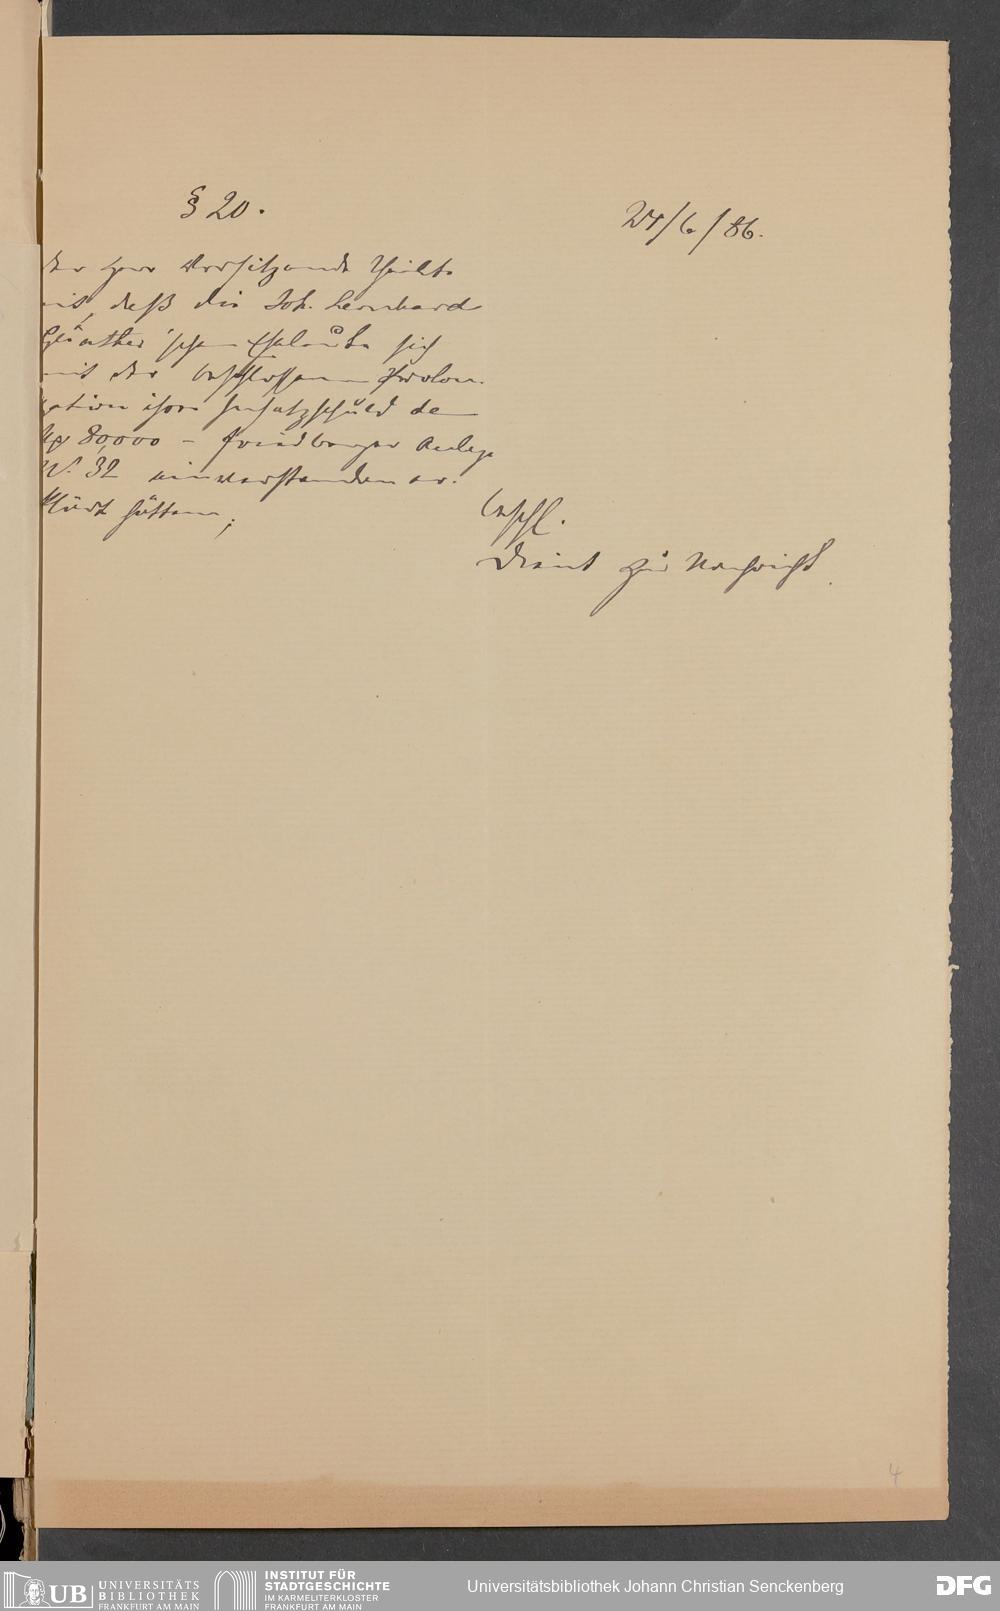 § 20.
24/6/86.
der Herr Vorsitzende theilte
mit, daß die Joh. Bernhard
Günther'schen Eheleute sich
mit der beschlossenen Prolon-
gation ihrer Insatzschuld de
M 80,000 – Friedberger Anlage
N. 32 einverstanden er-
klärt hätten;
beschl.
Dient zur Nachricht.
4
UB UNIVERSITÄTS
BIBLIOTHEK
FRANKFURT AM MAIN
INSTITUT FÜR
STADTGESCHICHTE
IM KARMELITERKLOSTER
FRANKFURT AM MAIN
Universitätsbibliothek Johann Christian Senckenberg
DFG